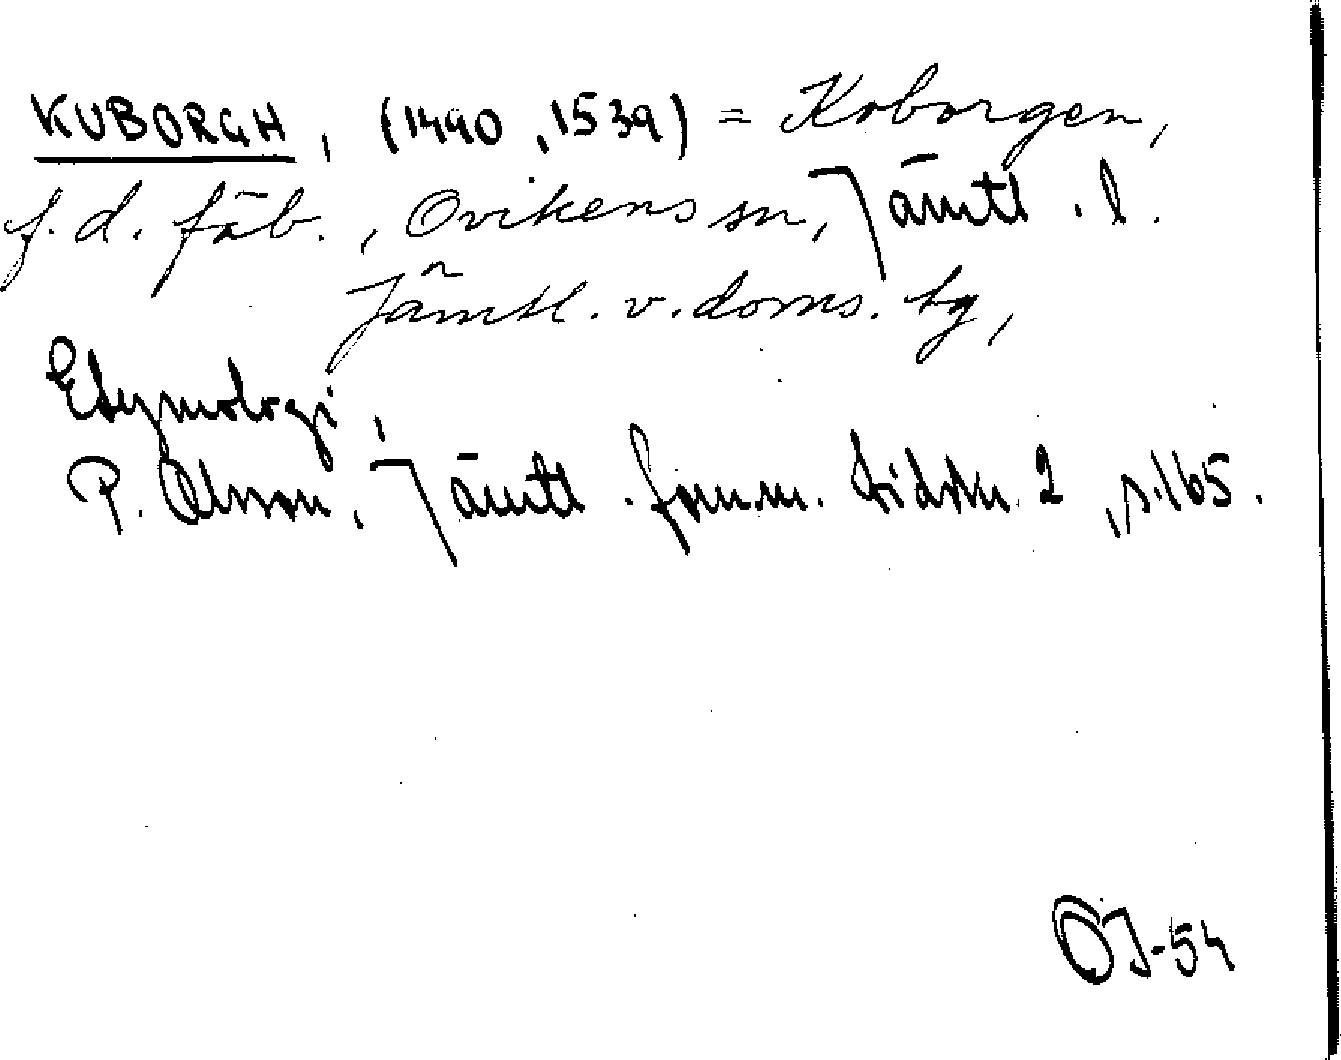 KUBORGH, (1490, 1539) = Koborgen,
f.d. fäb., Ovikens sn, Jämtl. l.
Jämtl. v. doms. tg,
Etymologi,
P. Olsson, Jämtl. forn.m. tidskr. 2, s. 165.
OJ-54